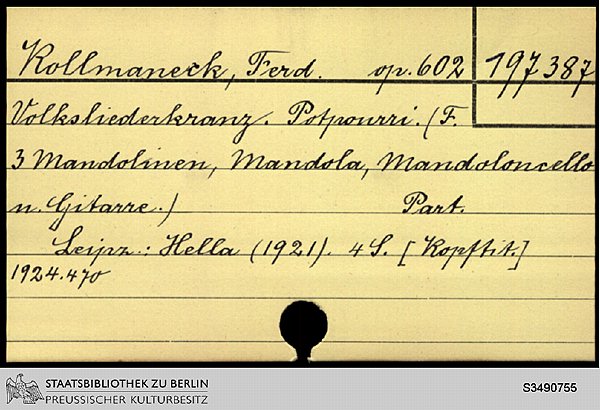 Kollmaneck, Ferd. op. 602 197387
Volksliederkranz. Potpourri. (F.
3 Mandolinen, Mandola, Mandoloncello
u. Gitarre.) Part.
Leipz.: Hella (1921). 4 S. [Kopftit.]
1924.470
STAATSBIBLIOTHEK ZU BERLIN
PREUSSISCHER KULTURBESITZ
S3490755